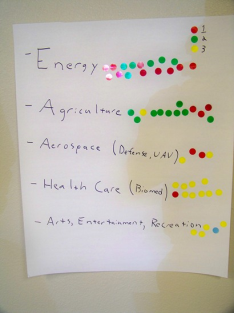 1
2
3
- Energy
- Agriculture
- Aerospace (Defense, UAV)
- Health Care (Biomed)
- Arts, Entertainment, Recreation